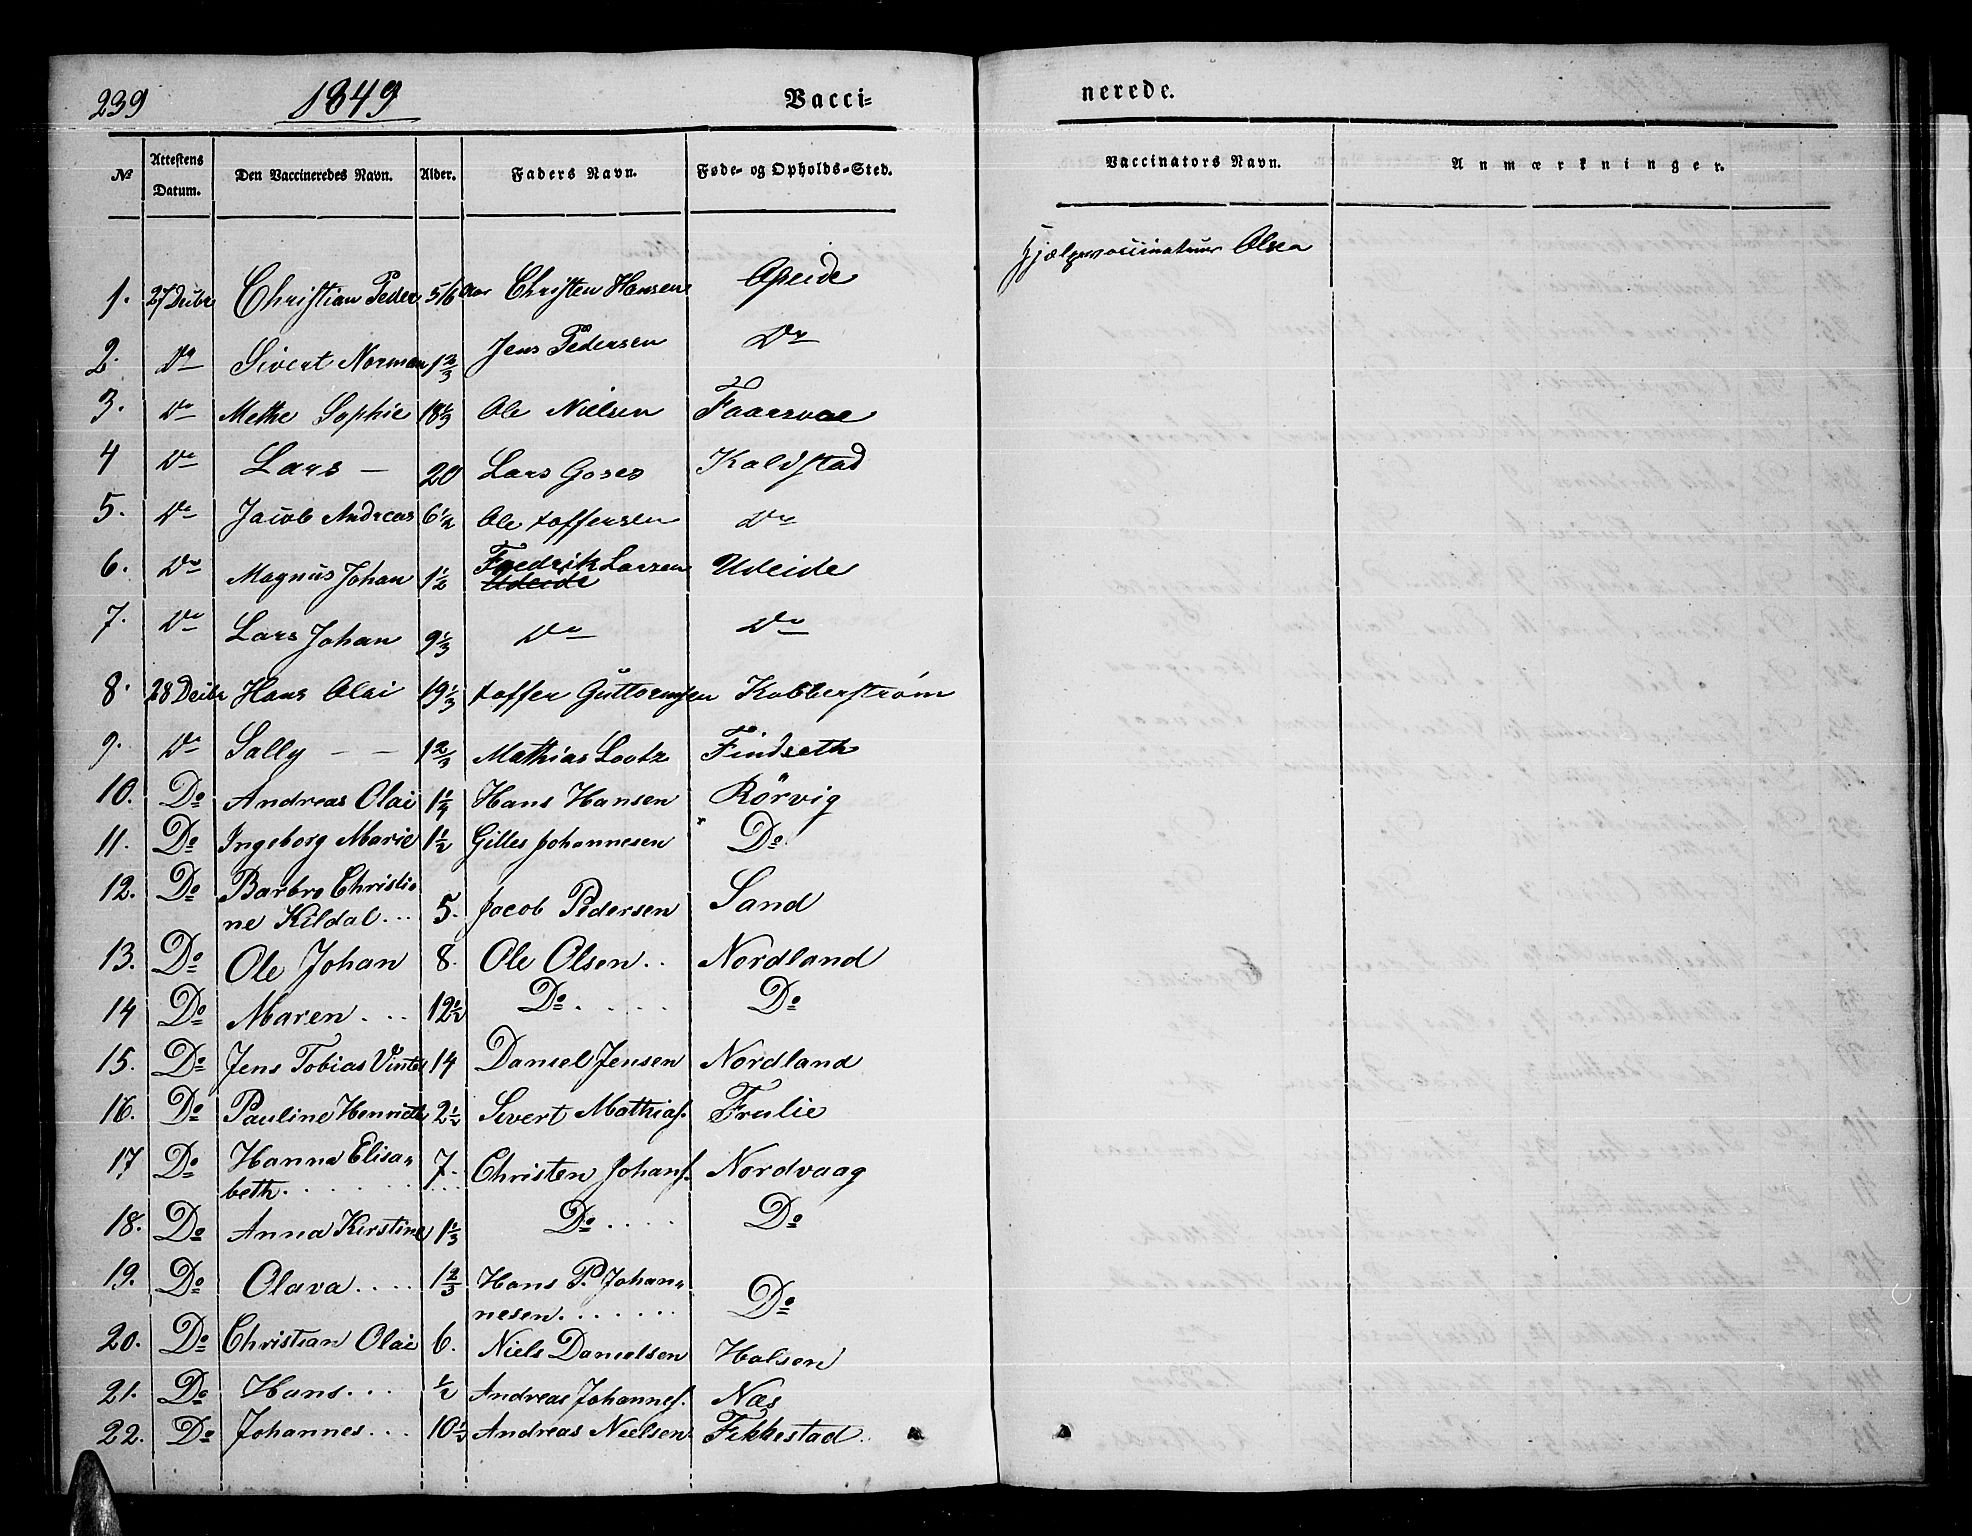 239 1849 Vacci-
nerede.
№ Attestens Datum. Den Vaccineredes Navn. Alder. Faders Navn. Føde- og Opholds-Sted. Vaccinators Navn. Anmærkninger.
1. 27 Decbr Christian Peder 5/6 Aar Christen Hansen Opeide Hjælpevaccinateur Olsen
2. Do Sivert Norman 1 2/3 Jens Pedersen Do
3. Do Methe Sophie 18 1/3 Ole Nielsen
4 Do Lars — 20 Lars Kaldstad
5. Do Jacob Andreas 6 1/2 Ole toffersen Do
6. Do Magnus Johan 1 1/2 Fredrik Larsen Udeide
Udeide
7. Do Lars Johan 9 1/3 Do Do
8. 28 Decbr Hans Olai 19 1/3 toffer Guttormsen Kobberstrøm
9. Do Sally — — 1 2/3 Mathias Lootz Findseth
10. Do Andreas Olai 1 1/4 Hans Hansen Rörvig
11. Do Ingeborg Marie 1 1/2 Gilles Johannesen Do
12. Do Barbro Christi-
ne Kildal... 5. Jacob Pedersen Sand
13. Do Ole Johan 8. Ole Olsen.. Nordland
14 Do Maren... 12 1/2 Do.... Do
15. Do Jens Tobias Vinter 14 Daniel Jensen Nordland
16. Do Pauline Henriette 2 1/2 Sivert Mathias. Frulie
17 Do Hanna Elisa-
beth...... 7. Christen Johans. Nordvaag
18. Do Anna Kirstine 1 1/3 Do.... Do
19. Do Olava.... 1 2/3 Hans P. Johan-
nesen...... Do
20. Do Christian Olai 6. Niels Danielsen Halsen
21. Do Hans... 1/2 Andreas Johannes. Næs
22. Do Johannes... 10 1/3 Andreas Nielsen Fikkestad.